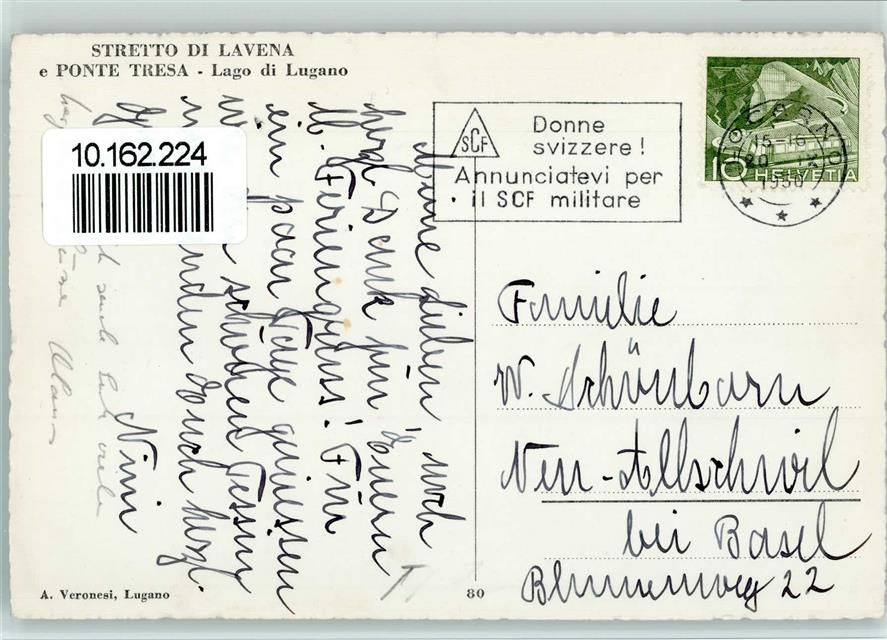 STRETTO DI LAVENA
e PONTE TRESA - Lago di Lugano
10.162.224
SCF
Donne
svizzere!
Annunciatevi per
il SCF militare
LOCARNO
15-16
20
1956
10 HELVETIA
Meine Lieben, noch
herzl. Dank für Euern
lb. Feriengruss! Für
ein paar Tage geniessen
wir den schönen Tessin
und senden Euch herzl.
Nini
Euch sende viele
Grüsse Klaus
Familie
W. Schönbarn
Neu-Allschwil
bei Basel
Blumenweg 22
A. Veronesi, Lugano
80